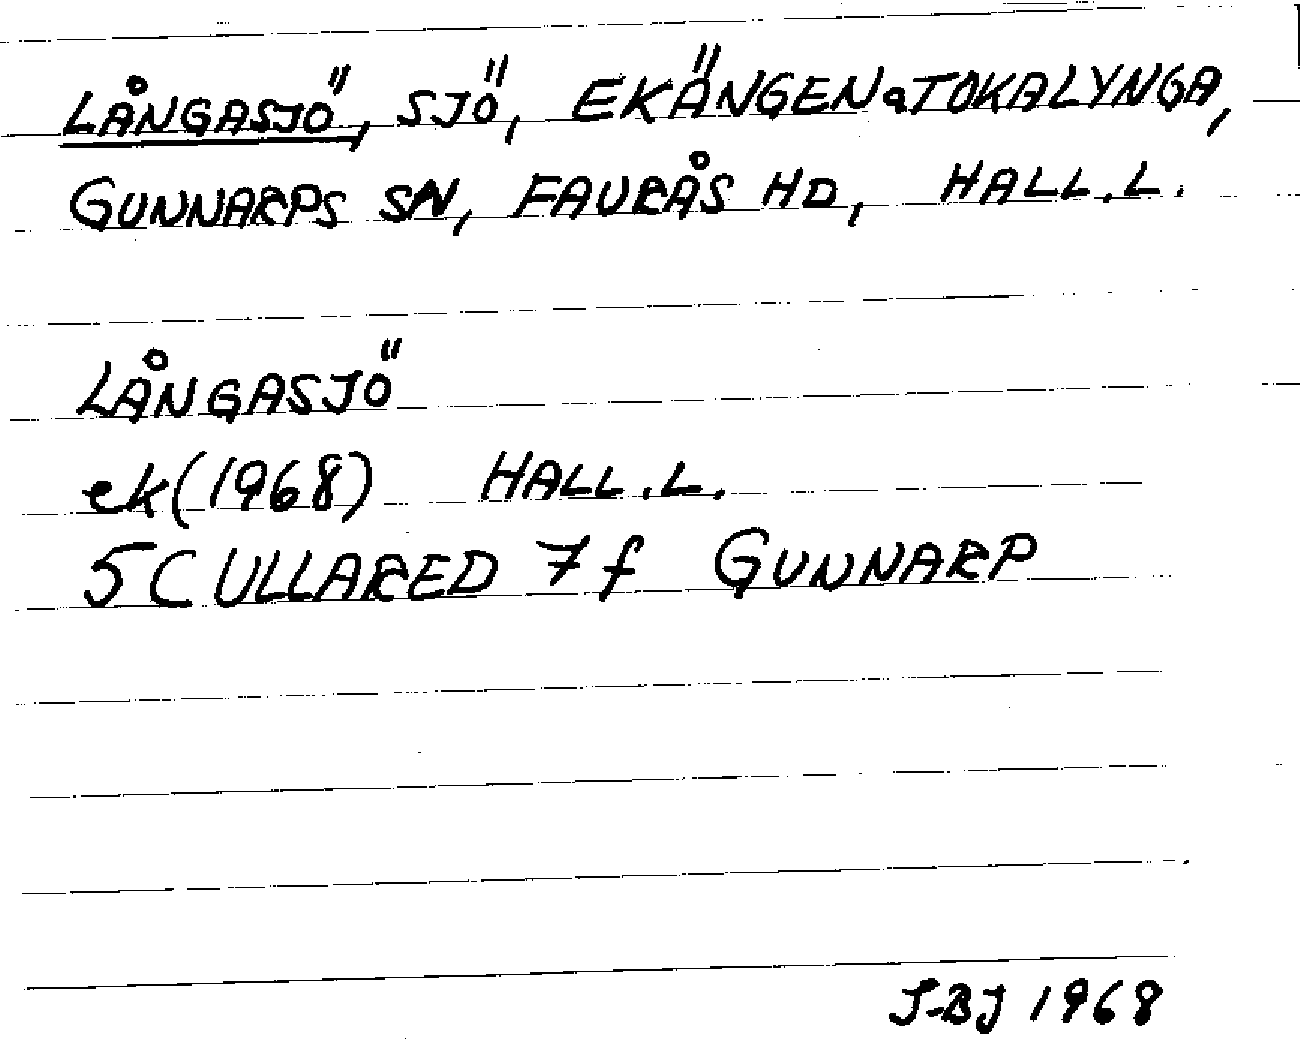 LÅNGASJÖ, SJÖ, EKÄNGEN a TOKALYNGA,
GUNNARPS SN, FAURÅS HD, HALL.L.
LÅNGASJÖ
ek(1968) HALL.L.
5C ULLARED 7f GUNNARP
J-BJ 1968